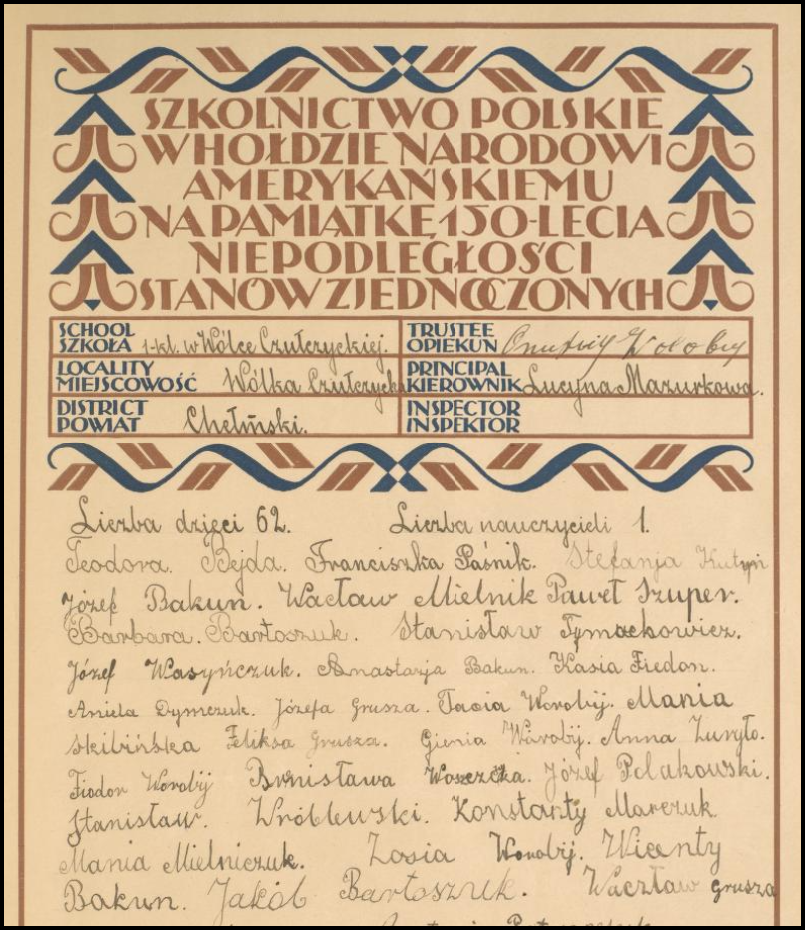 SZKOLNICTWO POLSKIE
W HOŁDZIE NARODOWI
AMERYKAŃSKIEMU
NA PAMIĄTKĘ 150-LECIA
NIEPODLEGŁOŚCI
STANÓW ZJEDNOCZONYCH
SCHOOL SZKOŁA 1-kl. w Wólce Czułczyckiej.
TRUSTEE OPIEKUN
LOCALITY MIEJSCOWOŚĆ Wólka Czułczycka
PRINCIPAL KIEROWNIK Lucyna Mazurkowa.
DISTRICT POWIAT Chełmski.
INSPECTOR INSPEKTOR
Liczba dzieci 62. Liczba nauczycieli 1.
Teodora. Bejda. Franciszka Paśnik. Stefanja
Józef Bakun. Wacław Mielnik Paweł Szuper.
Barbara. Bartoszuk. Stanisław Tymockowicz.
Józef Wasyńczuk. Anastazja Bakun. Kasia Fiedon.
Aniela Dymczuk. Józefa Grusza. Tacia Worobij. Mania
Skibińska Feliksa Grusza. Gienia Worobij. Anna Zuryło.
Fiodor Worobij Bronisława Woszczka. Józef Polakowski.
Stanisław. Wróblewski. Konstanty Marczuk
Mania Mielniczuk. Zosia Worobij. Wicenty
Bakun. Jakób Bartoszuk. Waczław Grusza